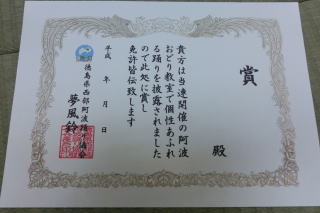 賞
殿
貴方は当連開催の阿波
おどり教室で個性あふれ
る踊りを披露されました
ので此処に賞し
免許皆伝致します
平成　年　月　日
徳島県西部阿波踊り協会
夢風鈴